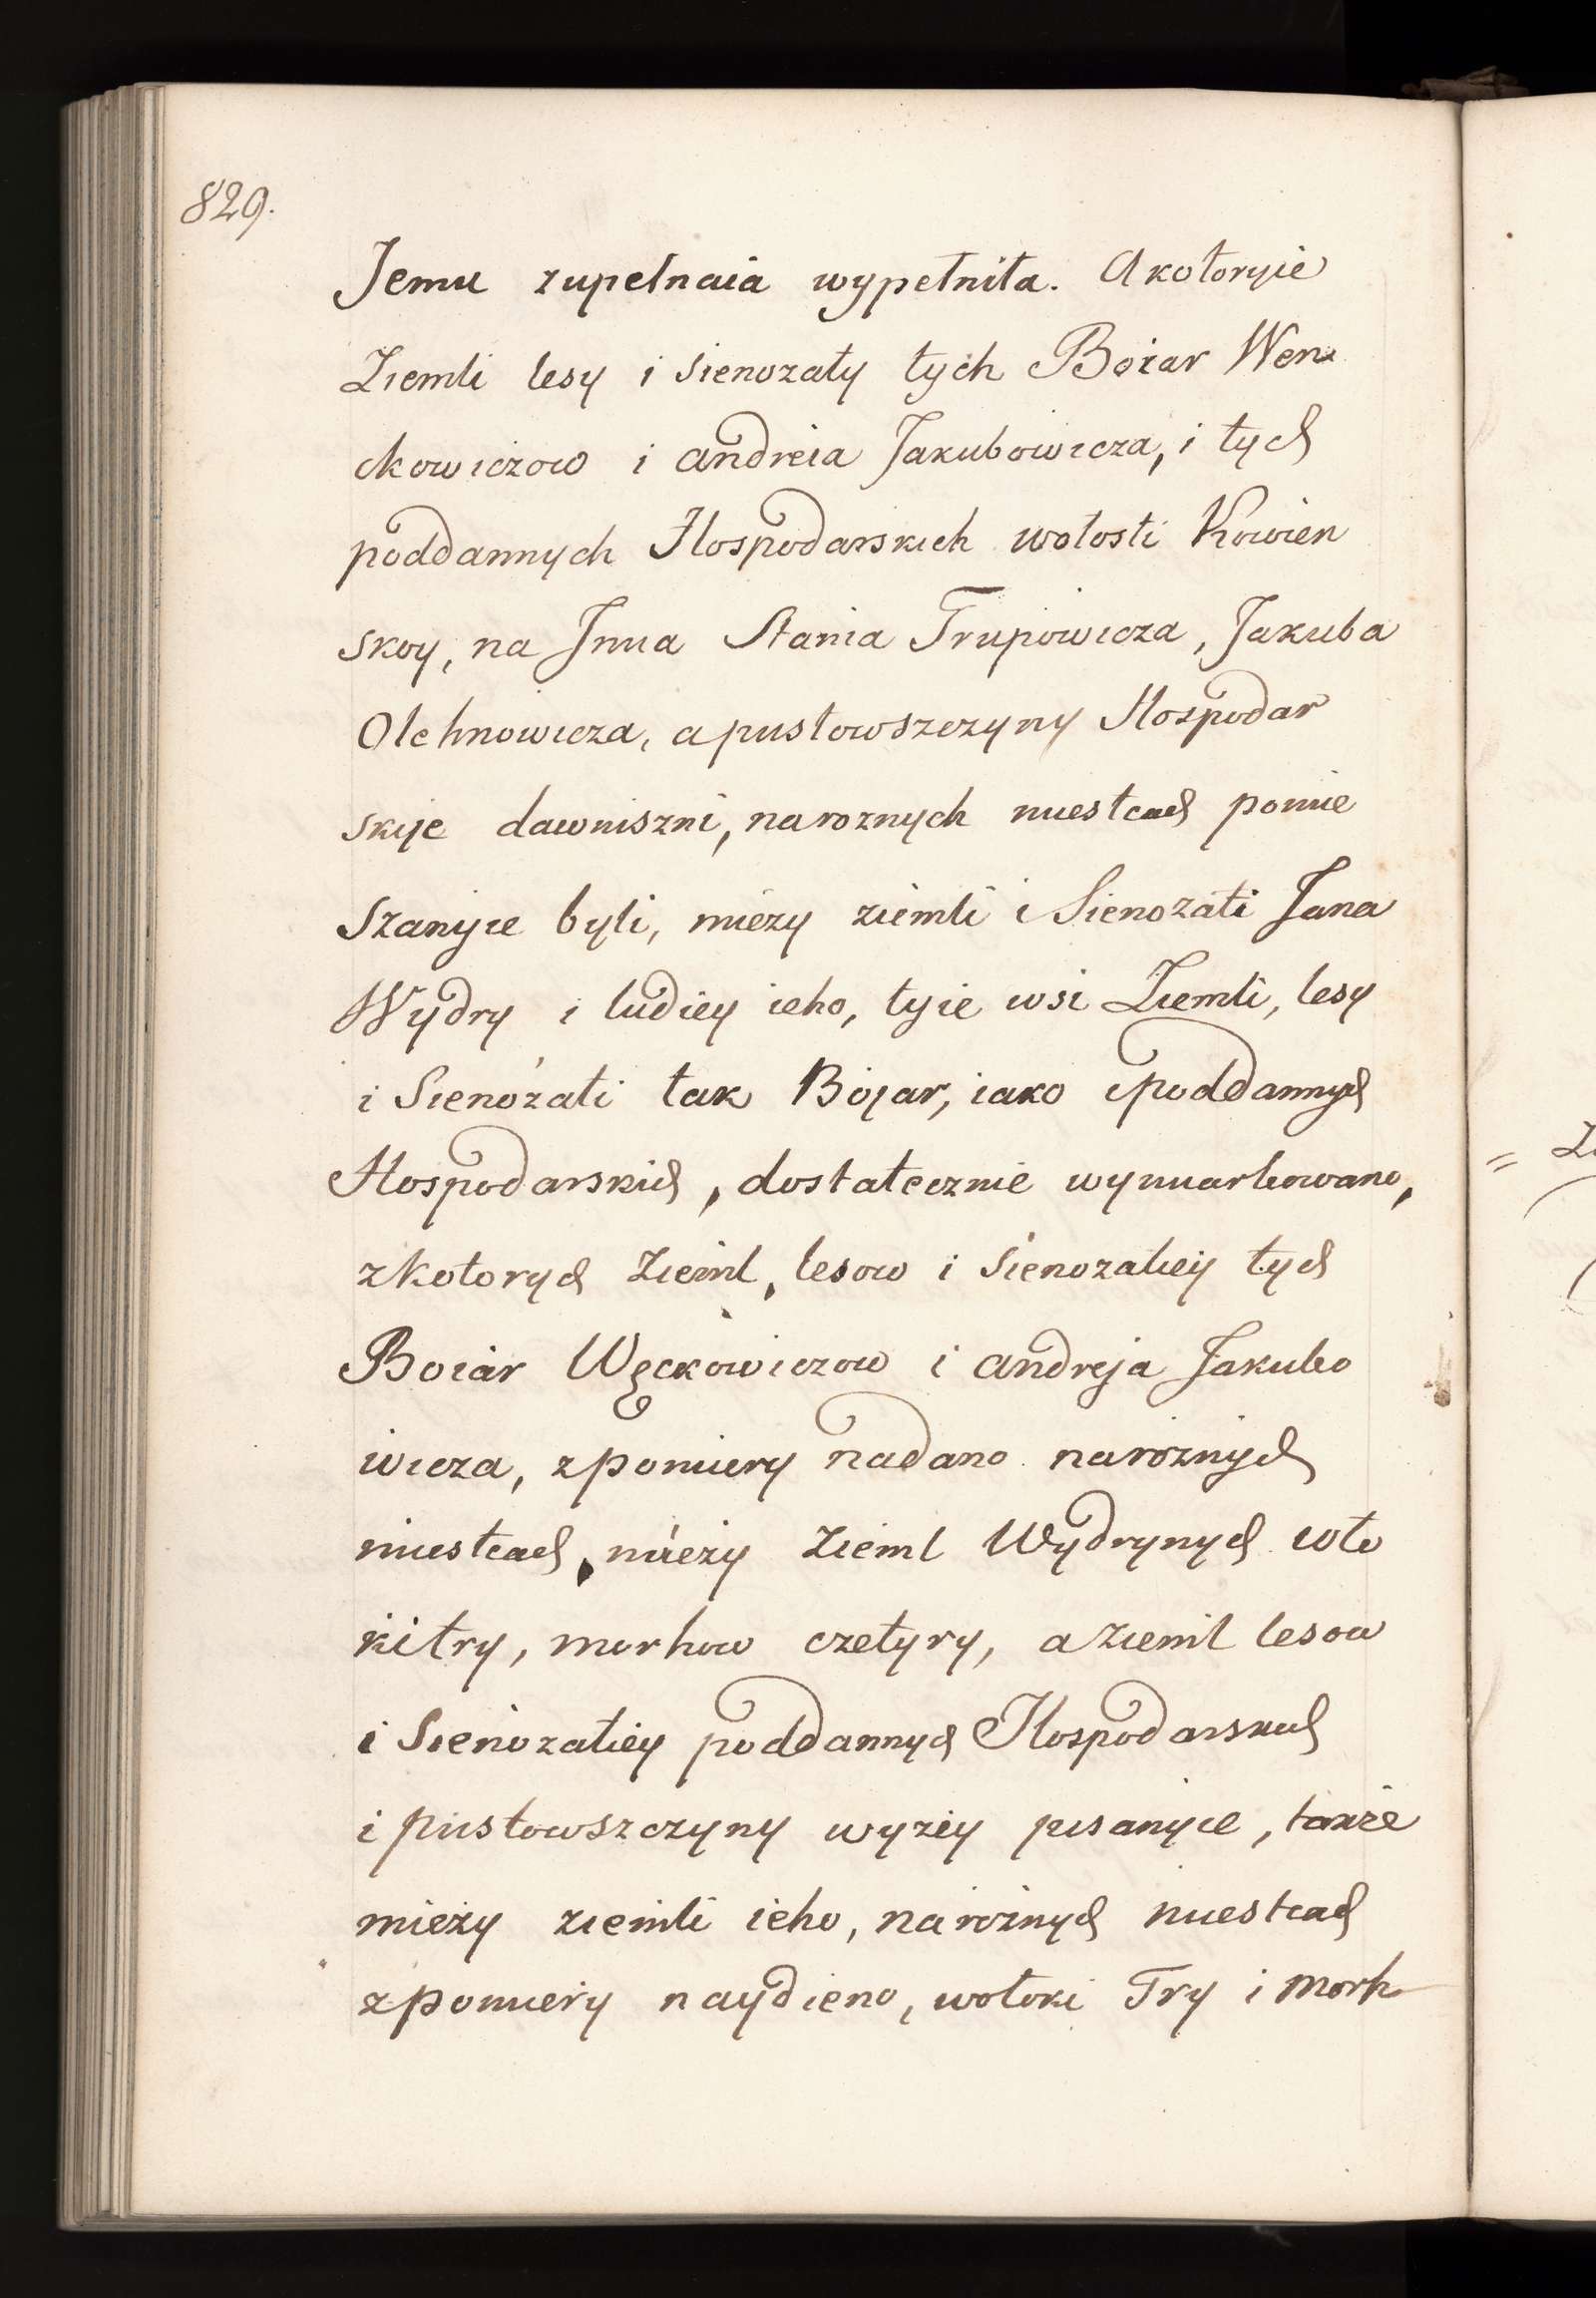 829.
Jemu zupełnaia wypełniła. A kotoryie
Ziemli lesy i sienozaty tych Boiar Wen
ckowiczow i andreia Jakubowicza, i tych
poddannych Hospodarskich wołosti Kowien
skoy, na Imia Stania Trupowicza, Jakuba
Olehnowicza, a pustowszczyny Hospodar
skije dawniszni, na roznych miestcach pomie
szanyie byli, miezy ziemli i Sienozati Jana
Wydry i ludiey ieho, tyie wsi Ziemli, lesy
i Sienożati tak Bojar, iako i poddannych
Hospodarskich, dostatecznie wymiarkowano,
z kotorych Ziemł, lesow i sienozatiey tych
Boiar Węckowiczow i andreja Jakubo
wicza, z pomiery nadano na roznych
miestcach, mieży Zieml Wydrynych woło
ki try, morhow czetyry, a Zieml lesow
i Sienozatiey poddannych Hospodarskich
i pustowszczyny wyziey pisanyie, takze
mieży ziemli ieho, na rożnych miestcach
z pomiery naydieno, wołoki Try i morh
= Zi